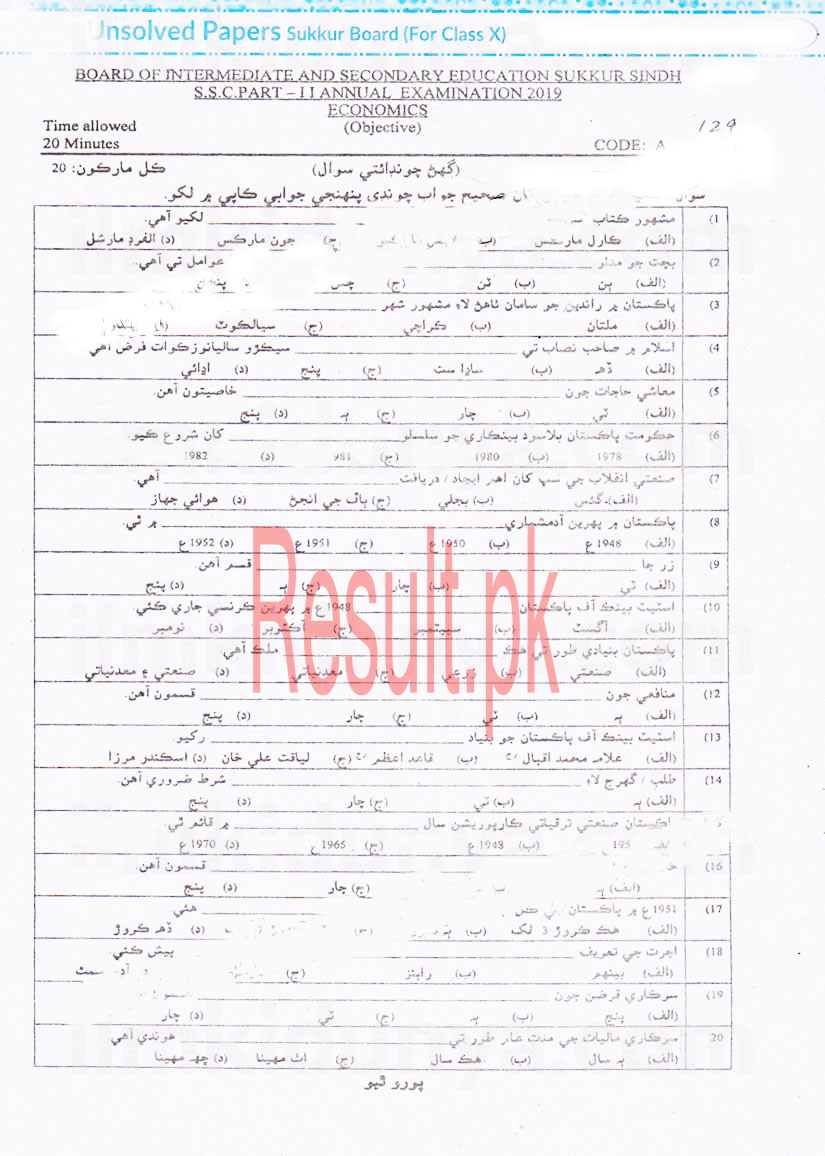 Unsolved Papers Sukkur Board (For Class X)
BOARD OF INTERMEDIATE AND SECONDARY EDUCATION SUKKUR SINDH
S.S.C.PART – I I ANNUAL EXAMINATION 2019
ECONOMICS
Time allowed (Objective) 129
20 Minutes CODE: A
(گهڻ چونڊائتي سوال) ڪل مارڪون: 20
صحيح جواب چونڊي پنهنجي جوابي ڪاپي ۾ لکو.
1) مشهور ڪتاب لکيو آهي.
(الف) ڪارل مارڪس (ب) (ج) جون مارڪس (د) الفرڊ مارشل
2) بچت جو مدار عوامل تي آهي.
(الف) ٻن (ب) ٽن (ج)
3) پاڪستان ۾ راندين جو سامان ٺاهڻ لاءِ مشهور شهر
(الف) ملتان (ب) ڪراچي (ج) سيالڪوٽ
4) اسلام ۾ صاحب نصاب تي سيڪڙو ساليانو زڪوات فرض آهي
(الف) ڏهه (ب) ساڍا ست (ج) پنج (د) اڍائي
5) معاشي حاجات جون خاصيتون آهن.
(الف) ٽي (ب) چار (ج) ٻه (د) پنج
6) حڪومت پاڪستان بلاسود بينڪاري جو سلسلو کان شروع ڪيو.
(الف) 1978 (ب) 1980 (ج) 981 (د) 1982
7) صنعتي انقلاب جي سڀ کان اهم ايجاد / دريافت آهي.
(الف) گئس (ب) بجلي (ج) ٻاڦ جي انجڻ (د) هوائي جهاز
8) پاڪستان ۾ پهرين آدمشماري ۾ ٿي.
(الف) 1948ع (ب) 1950ع (ج) 1951ع (د) 1952ع
9) زر جا قسم آهن.
(الف) ٽي (ب) چار (ج) ٻه (د) پنج
10) اسٽيٽ بينڪ آف پاڪستان 1948ع ۾ پهرين ڪرنسي جاري ڪئي.
(الف) آگسٽ (ب) سيپٽمبر (ج) آڪٽوبر (د) نومبر
11) پاڪستان بنيادي طور تي هڪ ملڪ آهي.
(الف) صنعتي (ب) زرعي (ج) معدنياتي (د) صنعتي ۽ معدنياتي
12) منافعي جون قسمون آهن.
(الف) ٻه (ب) ٽي (ج) چار (د) پنج
13) اسٽيٽ بينڪ آف پاڪستان جو بنياد رکيو
(الف) علامه محمد اقبال (ب) قائد اعظم (ج) لياقت علي خان (د) اسڪندر مرزا
14) طلب / گهرج لاءِ شرط ضروري آهن.
(الف) ٻه (ب) ٽي (ج) چار (د) پنج
صنعتي ترقياتي ڪارپوريشن سال ۾ قائم ٿي.
195 (ب) 1948ع (ج) 1965ع (د) 1970ع
16) قسمون آهن.
(الف) ٻه (ج) چار (د) پنج
17) 1951ع ۾ پاڪستان هئي
(الف) هڪ ڪروڙ 3 لک (ب) (ج) (د) ڏهه ڪروڙ
18) اجرت جي تعريف پيش ڪئي
(الف) بينهم (ب) رابنز (ج)
19) سرڪاري قرضن جون
(الف) پنج (ب) ٻه (ج) ٽي (د) چار
20 سرڪاري ماليات جي مدت عام طور تي هوندي آهي
(الف) ٻه سال (ب) هڪ سال (ج) اٺ مهينا (د) ڇهه مهينا
پورو ٿيو
Result.pk